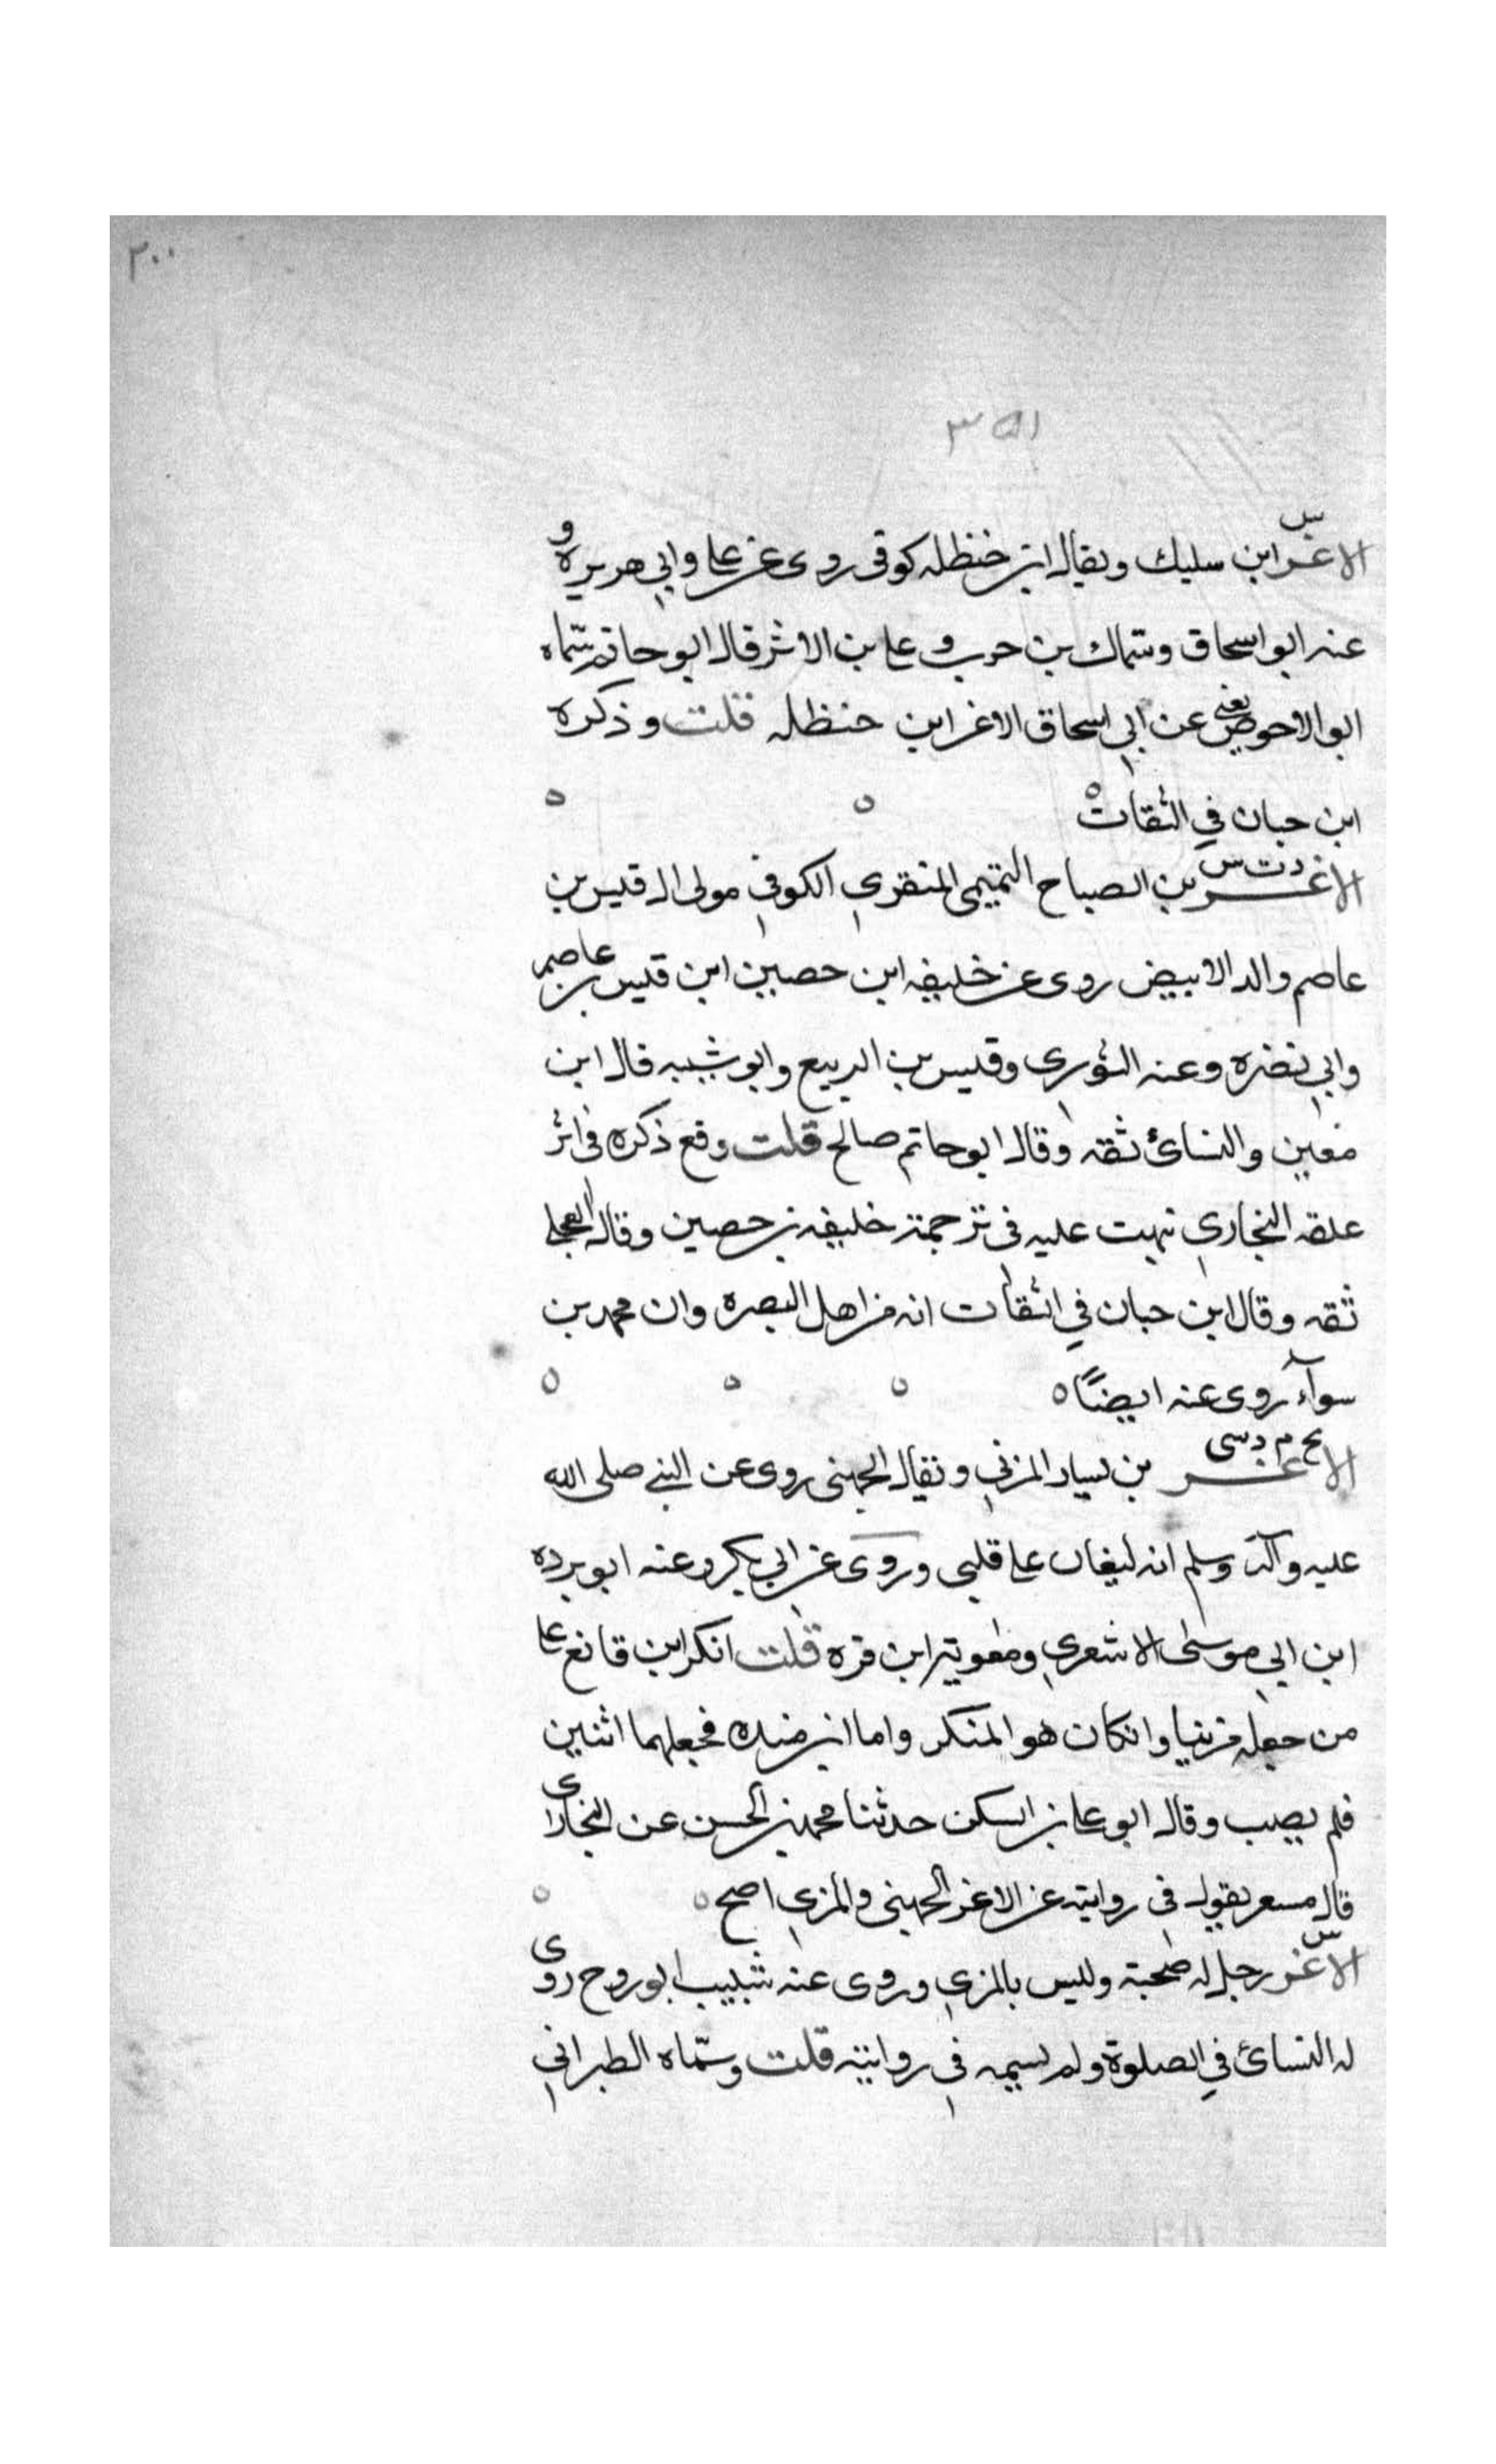 ٢٠٠
٣٥١
س
الاغر ابن سليك ويقال ابن حنظله كوفى روى عن على وابي هريره و
عنه ابو اسحاق وسماك بن حرب و على بن الاقمر قال ابو حاتم سماه
ابو الاحوص يعني عن ابي اسحاق الاغر ابن حنظله قلت وذكره
ابن حبان في الثقات ه
د ت س
الاغر بن الصباح التميمي المنقري الكوفي مولى ال قيس بن
عاصم والد الابيض روى عن خليفه ابن حصين ابن قيس بن عاصم
وابي نضره وعنه الثوري وقيس بن الربيع وابو شيبه قال ابن
معين والنسائ ثقه وقال ابو حاتم صالح قلت وقع ذكره فى اثر
علقه البخاري نبهت عليه فى ترجمة خليفه بن حصين وقال العجلى
ثقه وقال ابن حبان في الثقات انه من اهل البصره وان محمد بن
سوآء روى عنه ايضًا ه
بخ م د سى
الاغر بن يسار المزني ويقال الجهنى روى عن النبي صلى الله
عليه وآله وسلم انه ليغان على قلبى وروى عن ابي بكر وعنه ابو برده
ابن ابي موسى الاشعري ومعوية ابن قره قلت انكر ابن قانع على
من جعله مزنيا وانكان هو المنكر واما ابن منده فجعلهما اثنين
فلم يصب وقال ابو على بن السكن حدثنا محمد بن الحسن عن البخارى
قال مسعر يقول فى روايته عن الاغر الجهنى والمزي اصح
س
الاغر رجل له صحبة وليس بالمزي وروى عنه شبيب ابو روح روى
له النسائ في الصلوة ولم يسمه فى روايته قلت وسمّاه الطبراني